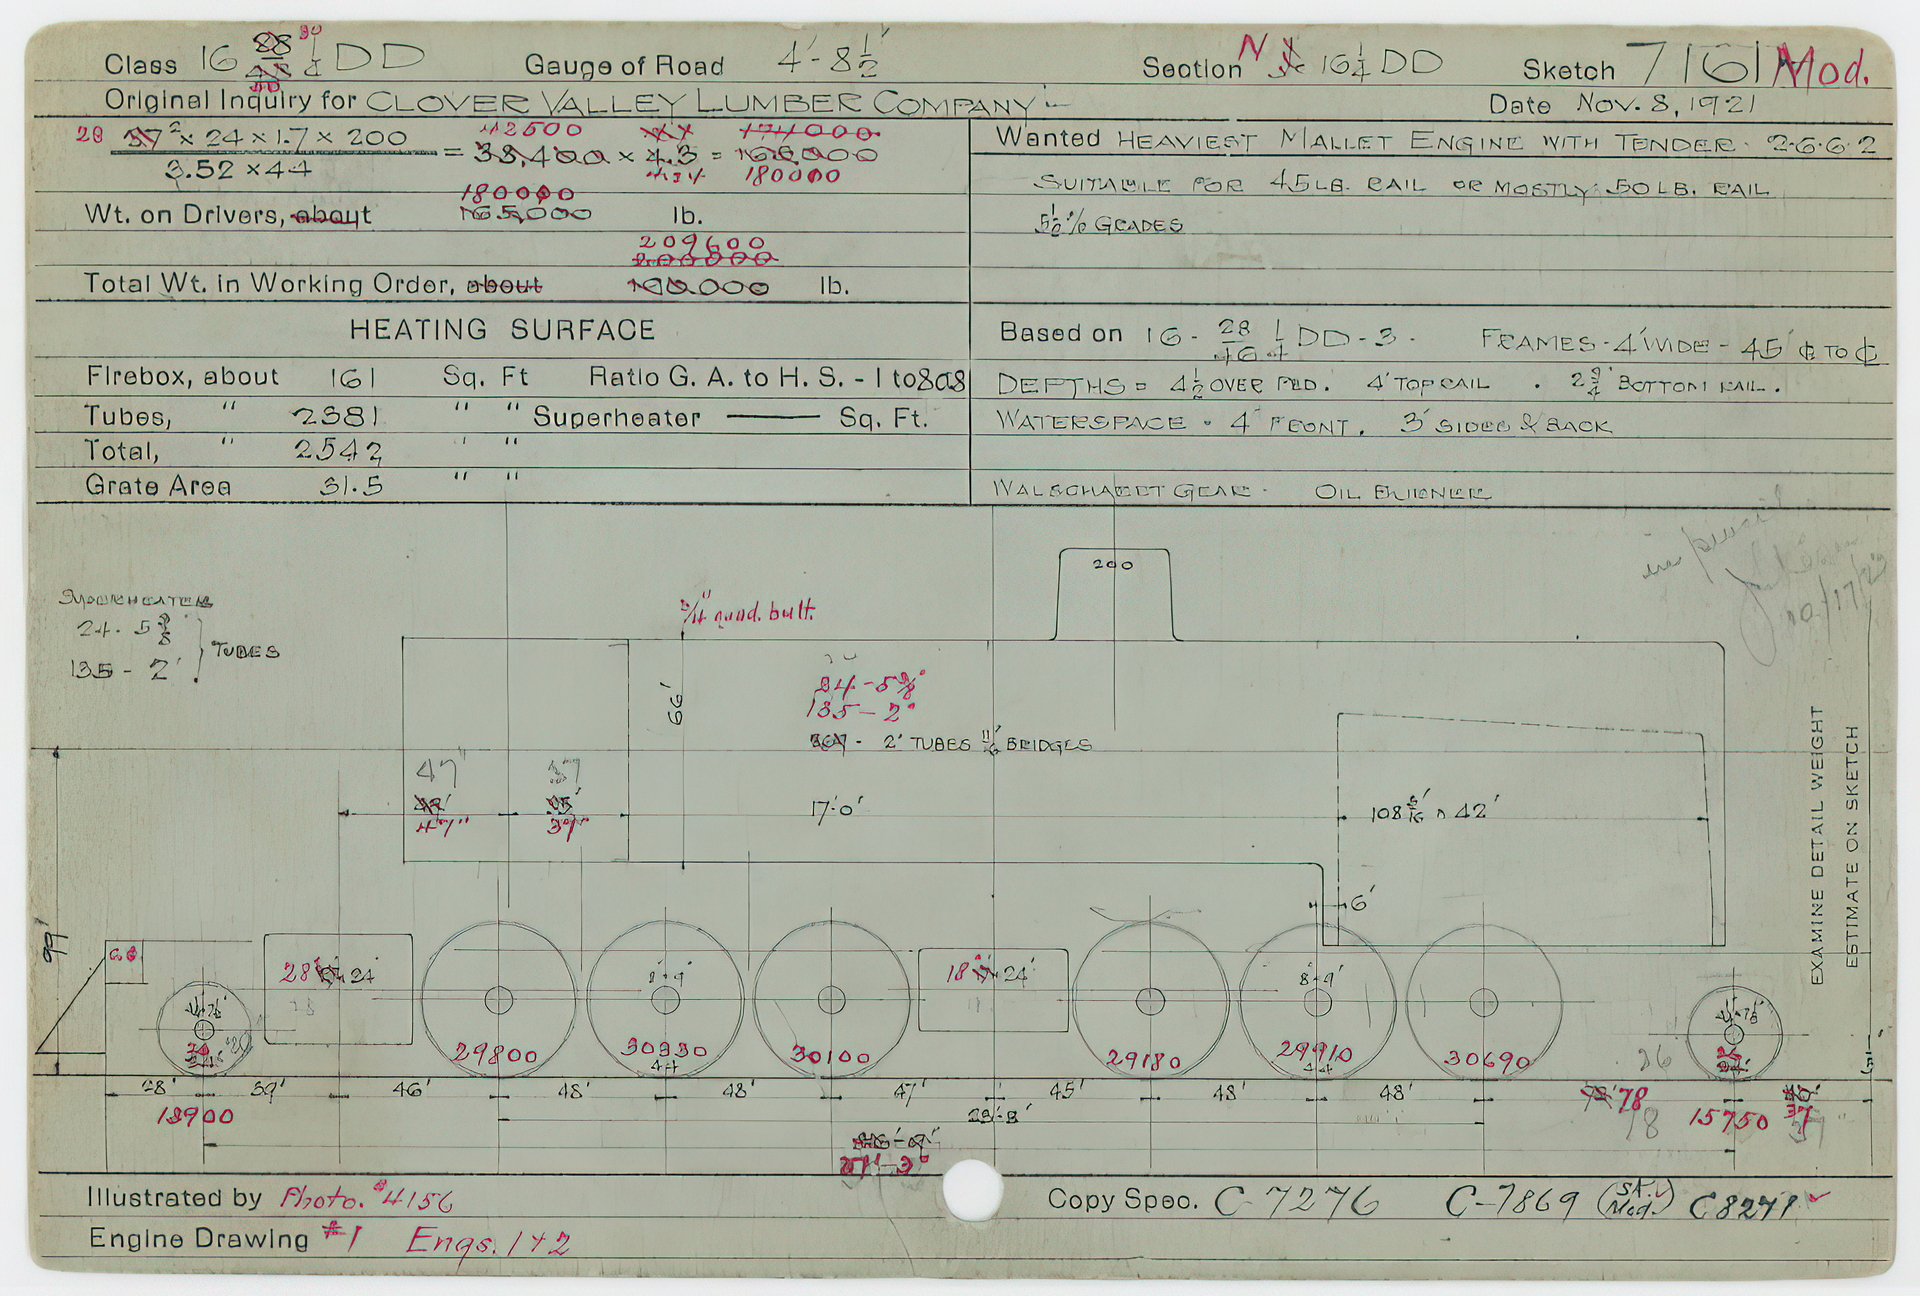 Class 16 28 1/4 DD Gauge of Road 4'-8 1/2" Section N 16 1/4 DD Sketch 7161 Mod.
Original Inquiry for CLOVER VALLEY LUMBER COMPANY
Date Nov. 8, 1921
28 17² × 24 × 1.7 × 200
3.52 × 44
42500
= 33,400 × 4.3 = 160,000
174000
180000
180000
Wt. on Drivers, about 165,000 lb.
209600
200000
Total Wt. in Working Order, about 190.000 lb.
Wanted HEAVIEST MALLET ENGINE WITH TENDER. 2-6-6-2
SUITABLE FOR 45 LB. RAIL OR MOSTLY 50 LB. RAIL
5 1/2 % GRADES
HEATING SURFACE
Firebox, about 161 Sq. Ft Ratio G. A. to H. S. - 1 to 808
Tubes, " 2381 " " Superheater Sq. Ft.
Total, " 2542 " "
Grate Area 31.5 " "
Based on 16 - 28/46 1/4 DD - 3. FRAMES - 4" WIDE - 45" ℄ TO ℄
DEPTHS = 4 1/2 OVER PED. 4" TOP RAIL . 2 3/4" BOTTOM RAIL.
WATERSPACE - 4" FRONT. 3" SIDES & BACK
WALSCHAERT GEAR. OIL BURNER
200
SUPERHEATER
24 - 5 3/8
135 - 2"
TUBES
10/17/23
3/4" quad. butt.
66"
34 - 5 3/8"
135 - 2"
2" TUBES 11/16" BRIDGES
47" 37
47" 37"
17'-0"
108 5/16 × 42"
6"
EXAMINE DETAIL WEIGHT
ESTIMATE ON SKETCH
99"
28 24"
8'-9"
18 24"
8-9"
29800 30330 30100 29180 29910 30690
44 44
26
36
28" 39" 46" 48" 48" 47" 45" 48" 48" 78
13900 15750 37
78 37"
28'-8"
Illustrated by Photo. #4156
Engine Drawing #1 Engs. 1 & 2
Copy Spec. C-7276 C-7869 (St. Mod.) C8271